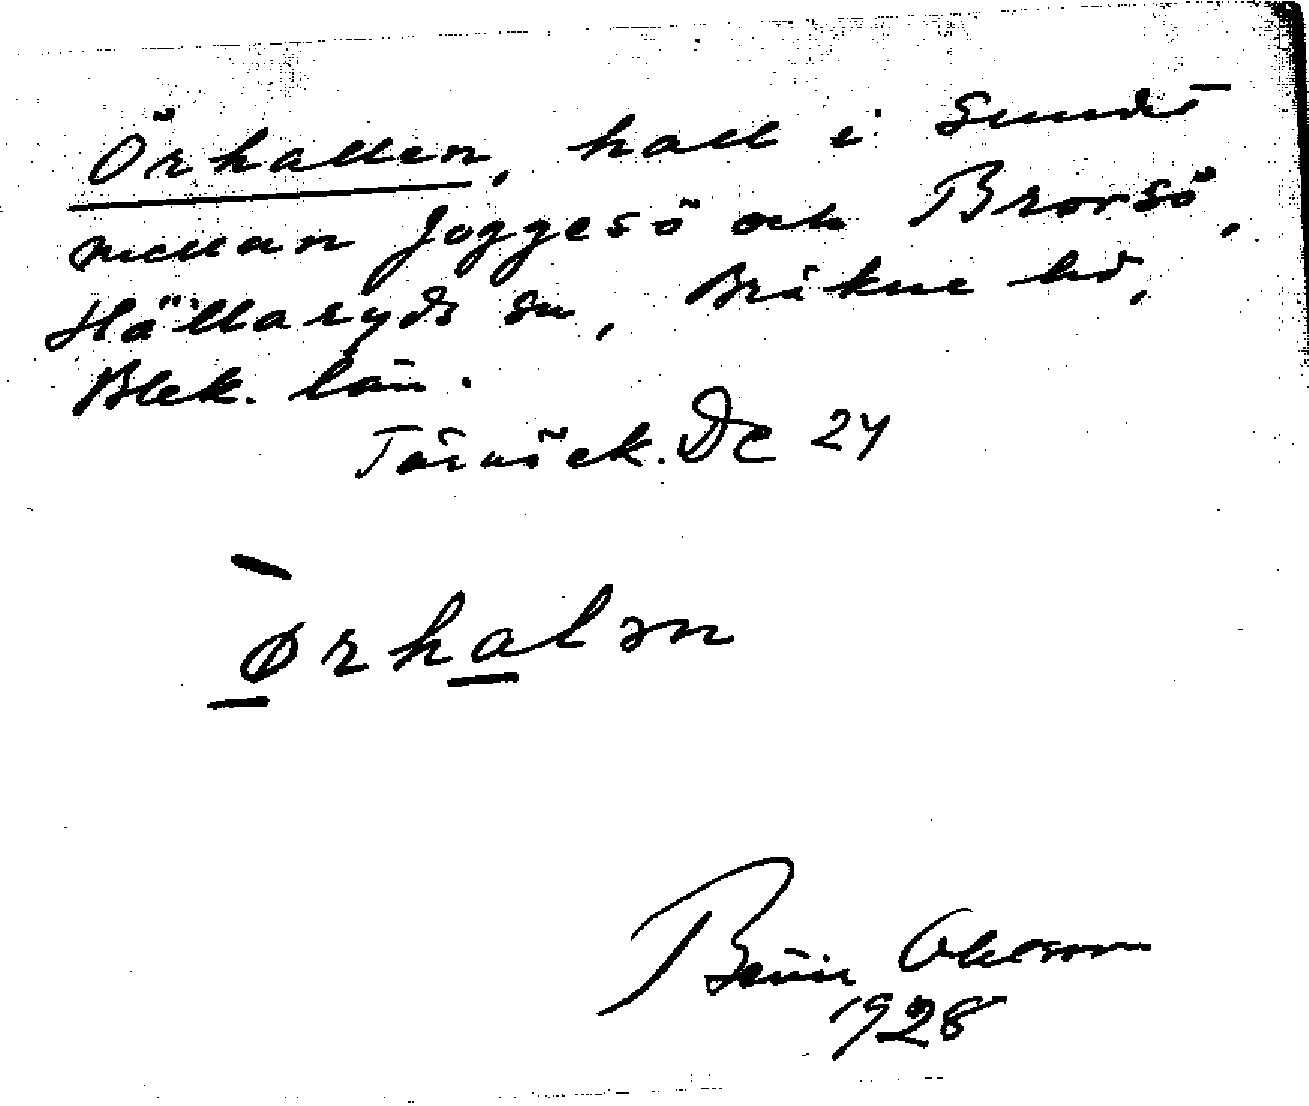 Örhallen, hall i sundet
mellan Joggesö och Brorsö,
Hällaryds sn, Bräkne hd,
Blek. län.
Tärnöek. De 24
ørhalən
Ohlsson
1928